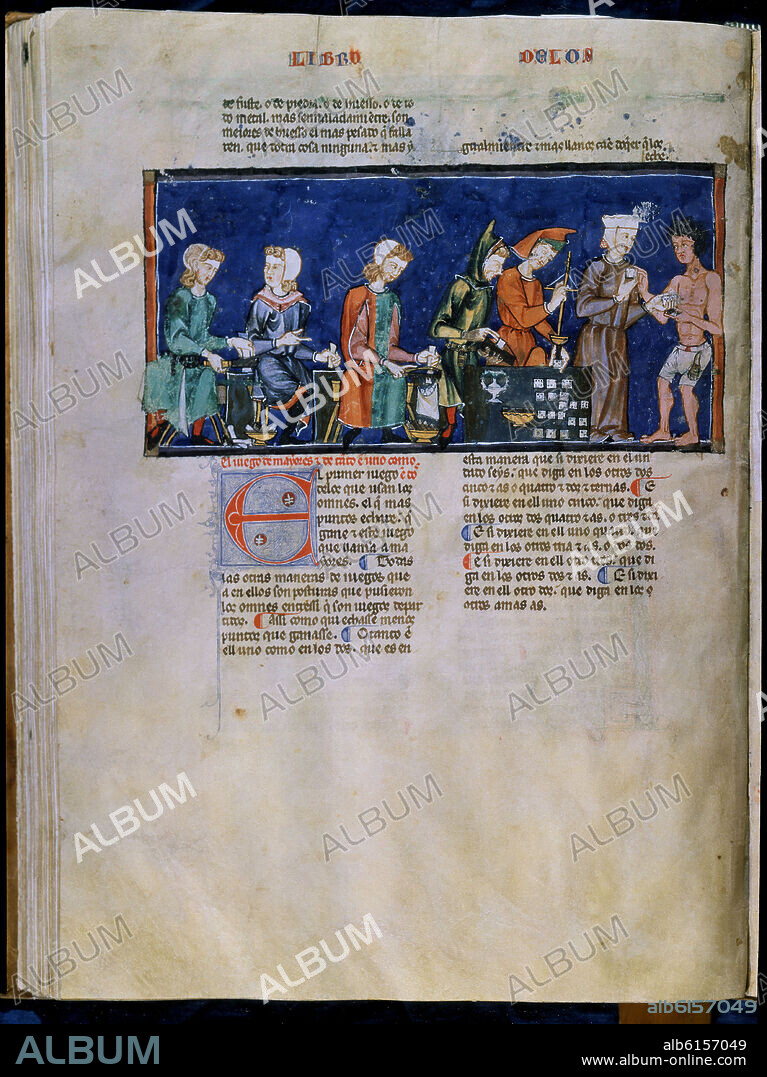 LIBRO DELOS
de fuste. o de piedra. o de huesso. o de to
do metal. mas sennaladamientre. son
meiores de huesso el mas pesado q̃ falla
ren. que dotra cosa ninguna. ⁊ mas y
gualmientre ⁊ mas llanos caẽ doq̃er q̃ los
eche.
El iuego de mayores ⁊ de tanto ẽ uno como
El primer iuego ẽ de
delos que usan los
omnes. el q̃ mas
puntos echare. q̃
gane ⁊ este iuego
que llaman ma
yores. Todas
las otras maneras de iuegos que
a en ellos son posturas que pusieron
los omnes entressi q̃ son iuegos depar
tidos. Assi como qui echasse menos
puntos que ganasse. O tanto ẽ
ell uno como en los dos. que es en
esta manera que si dixiere en el un
dado seys. que diga en los otros dos
cinco ⁊ as o quatro ⁊ dos ⁊ ternas. E
si dixiere en ell uno cinco. que diga
en los otros dos quatro ⁊ as. o tres ⁊ dos
E si dixiere en ell uno quatro. que
diga en los otros tria ⁊ as. o dos dos.
E si dixiere en ell otro tres. que di
ga en los otros dos ⁊ as. E si dixi
ere en ell otro dos. que diga en los
otros amas as.
ALBUM
alb6157049
ALBUM
alb6157049
www.album-online.com